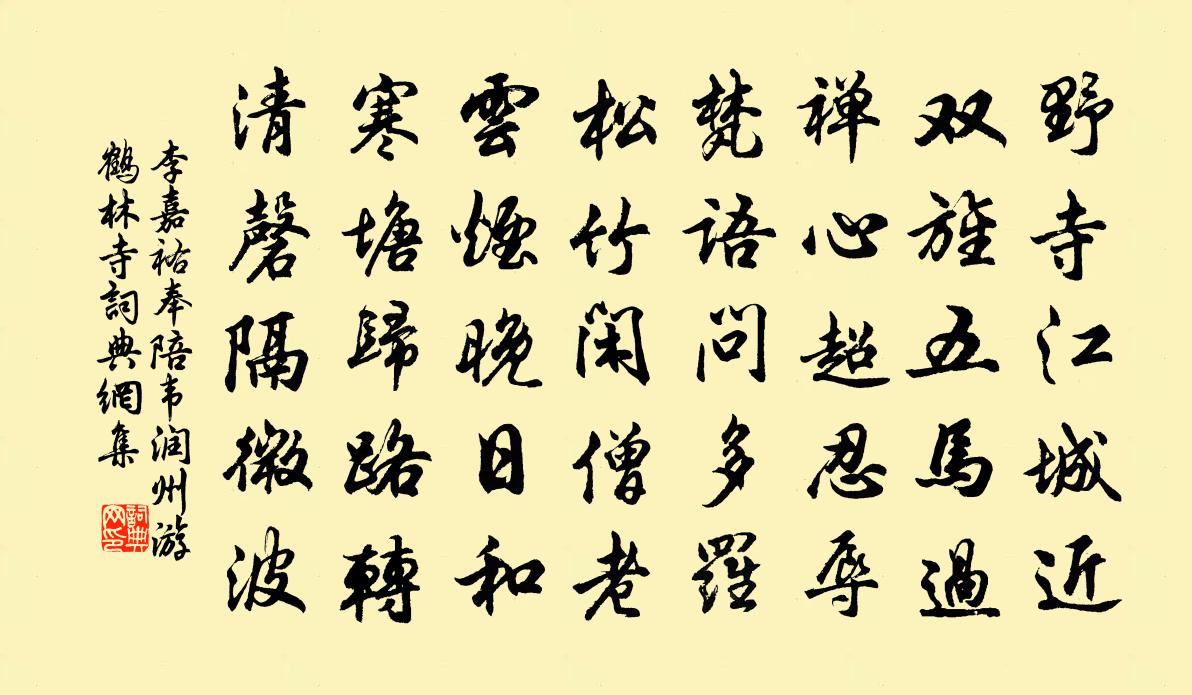 野寺江城近
双旌五馬過
禅心超忍辱
梵語問多羅
松竹閑僧老
雲煙晚日和
寒塘歸路轉
清磬隔微波
李嘉祐奉陪韦润州游
鶴林寺詞典網集
詞典
网印